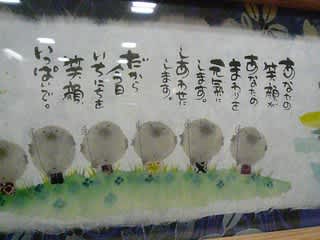 あなたの
笑顔が
あなたの
まわりを
元気に
します。
しあわせに
します。
だから
今日も
いちにちを
笑顔
いっぱいで。